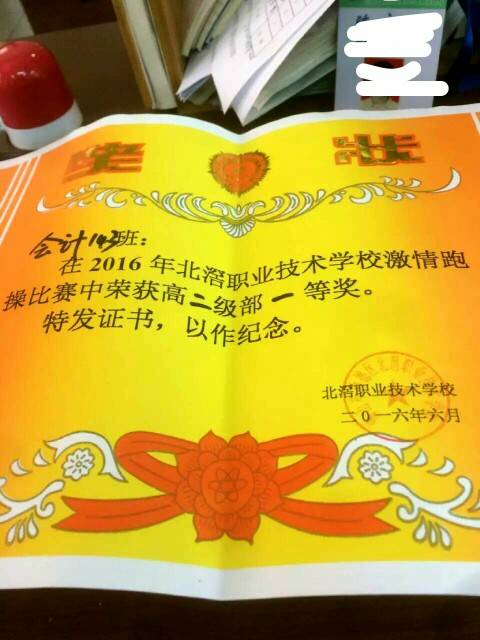 奖 状
会计143班：
在2016年北滘职业技术学校激情跑
操比赛中荣获高二级部一等奖。
特发证书，以作纪念。
北滘职业技术学校
二0一六年六月